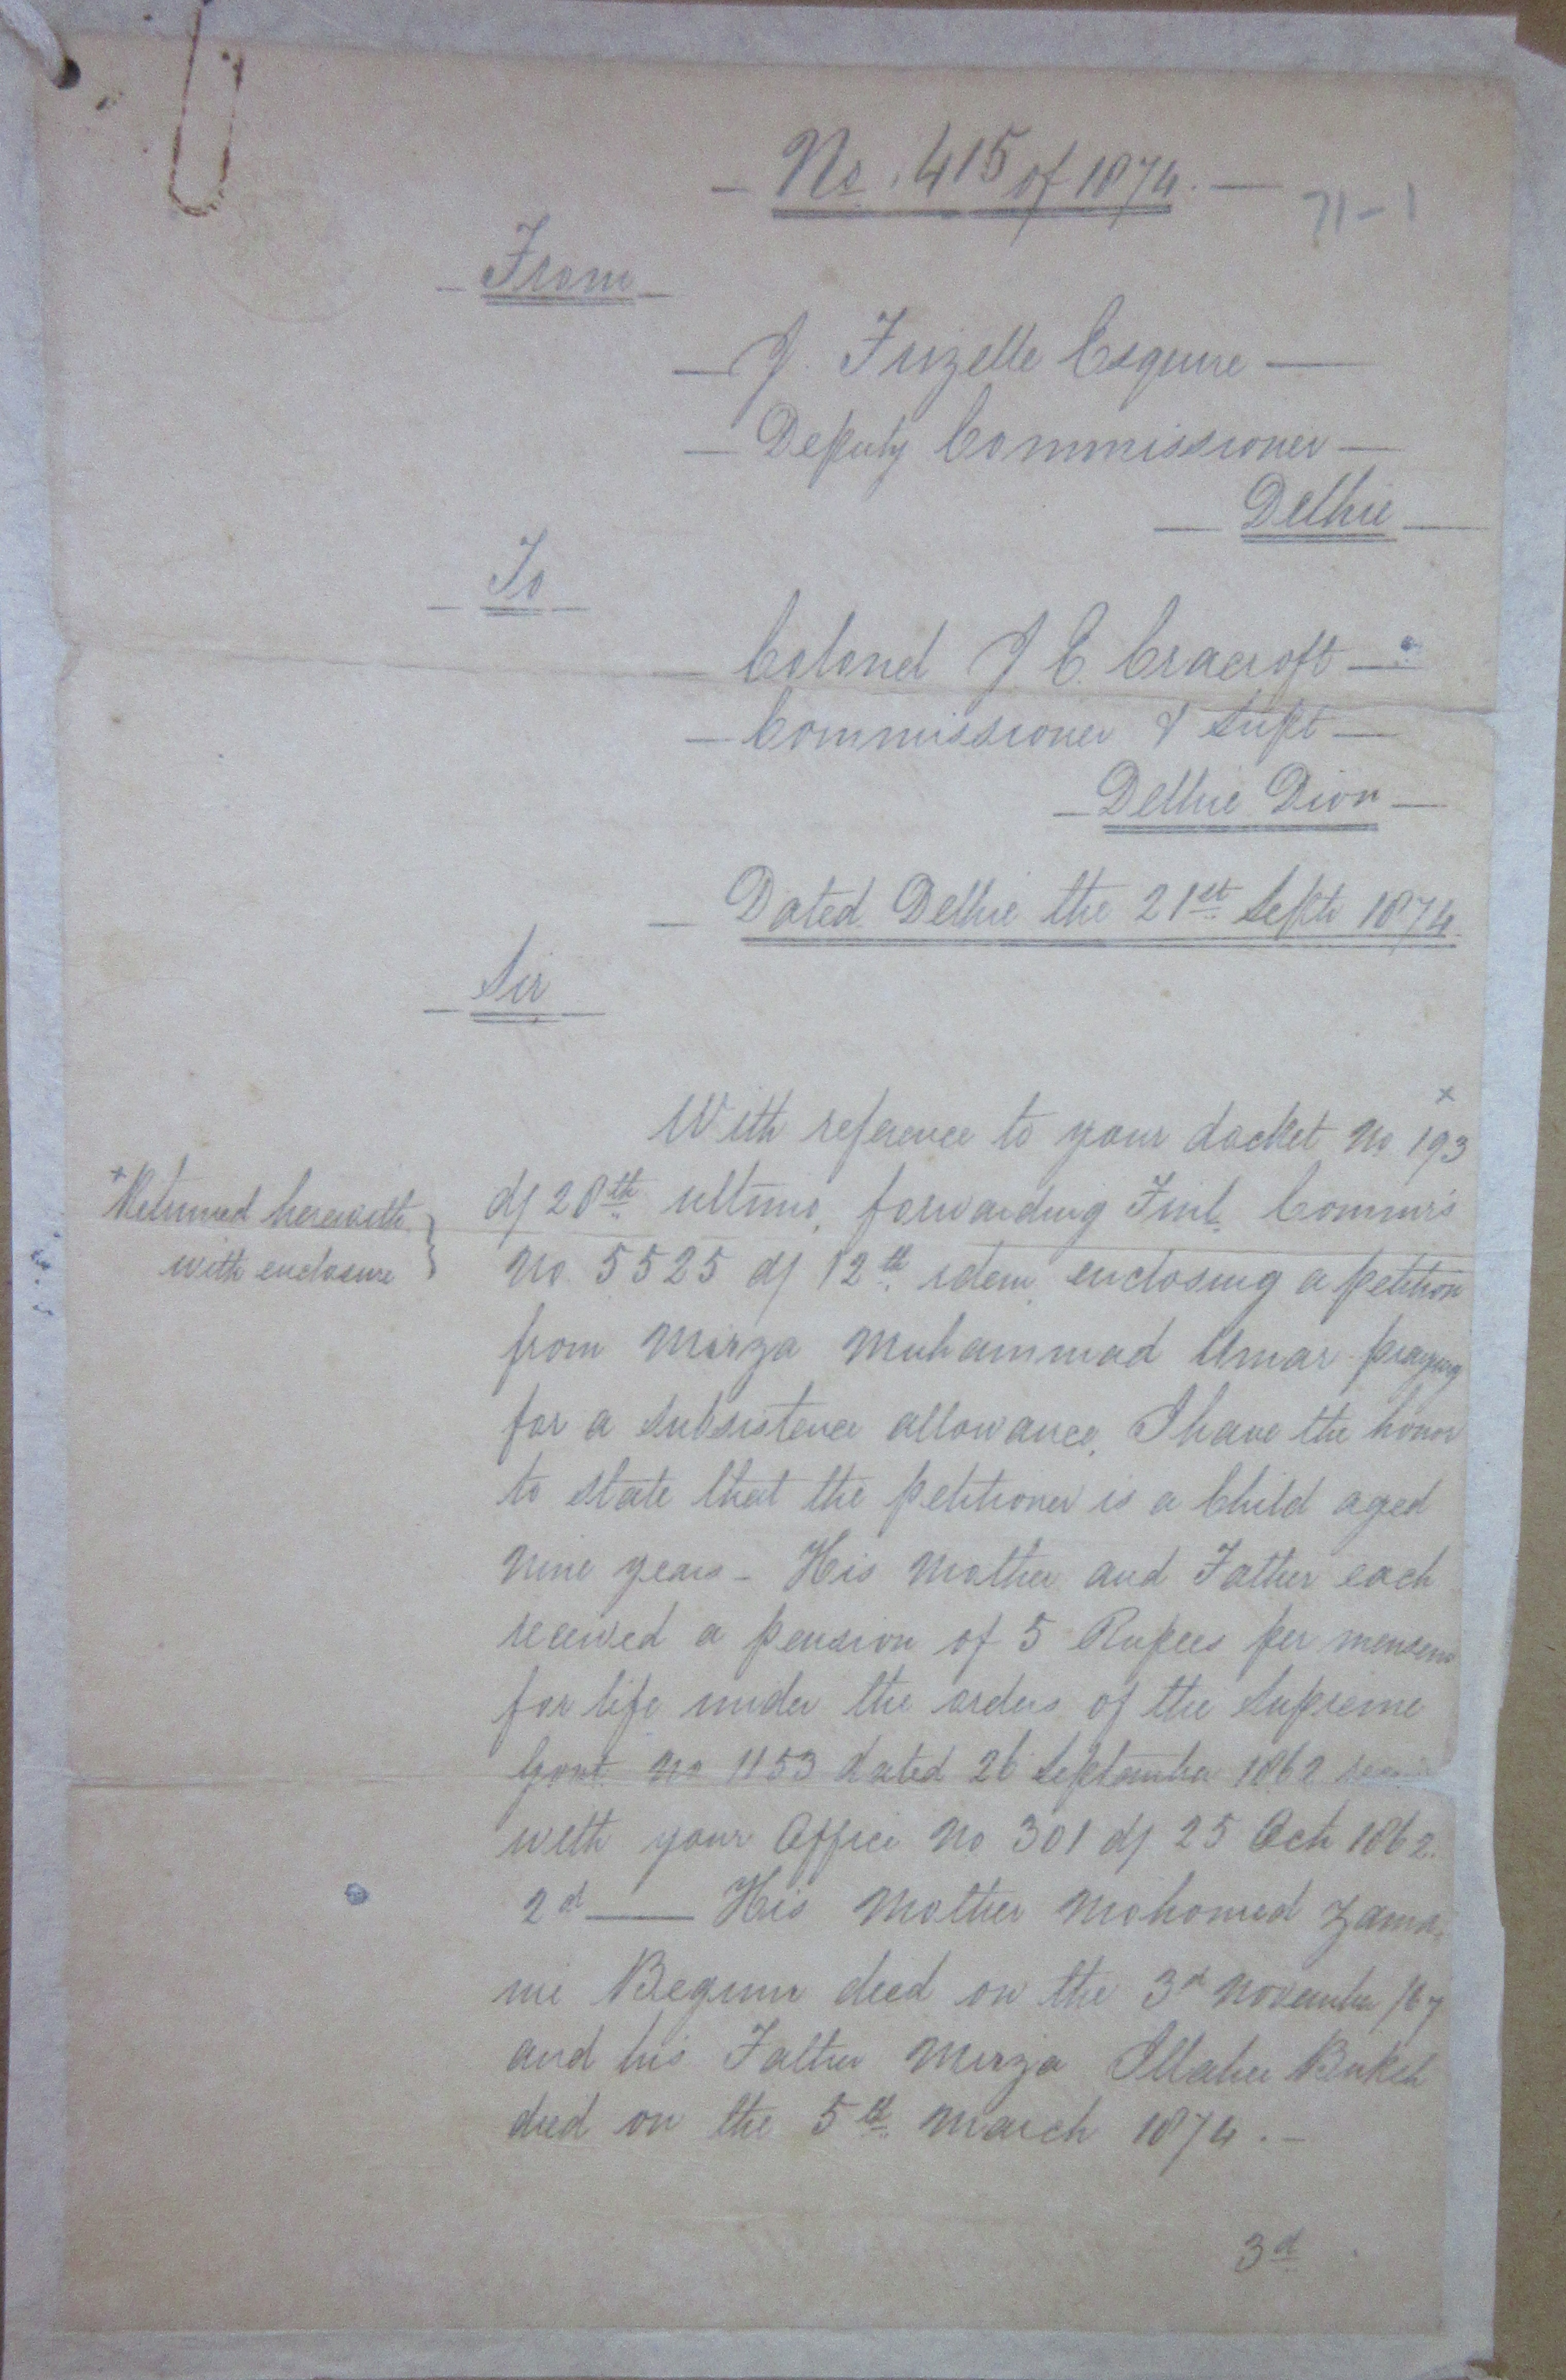 No. 415 of 1874.
71-1
From
J. Frizelle Esquire
Deputy Commissioner
Delhie
To
Colonel J E. Cracroft
Commissioner & Supt
Delhie Dion
Dated Delhie the 21st Septr 1874.
Sir
With reference to your docket No 193 x
d/ 28th ultimo, forwarding Finl. Commr's
x Returned herewith
with enclosure
No. 5525 d/ 12th idem, enclosing a petition
from Mirza Muhammad Umar praying
for a subsistence allowance, I have the honor
to state that the petitioner is a Child aged
nine years - His Mother and Father each
received a pension of 5 Rupees per mensem
for life under the orders of the Supreme
Govt. No 1153 dated 26 September 1862
with your Office No 301 d/ 25 Octr 1862.
2d His Mother Mohomed Zama-
nie Begum died on the 3d November /67
and his Father Mirza Illahee Buksh
died on the 5th March 1874. -
3d